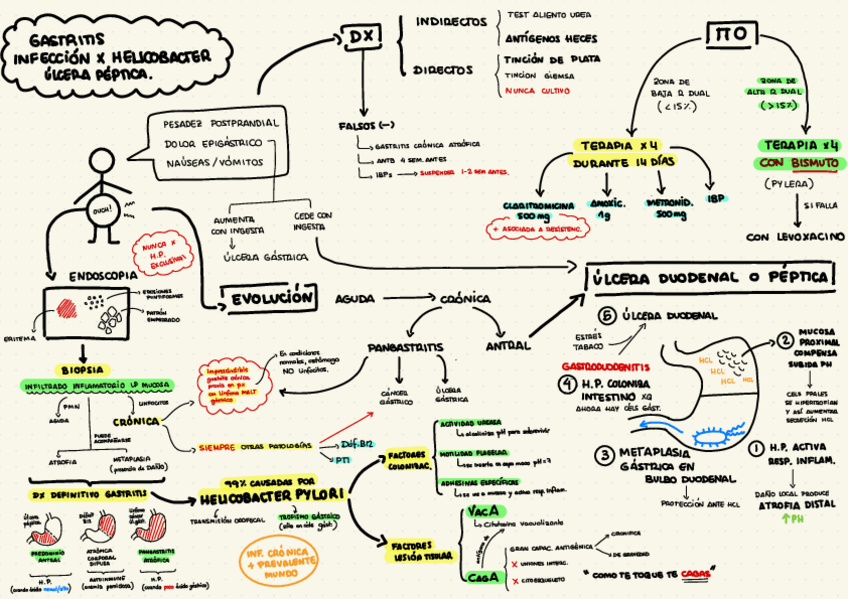 GASTRITIS
INFECCIÓN X HELICOBACTER
ÚLCERA PÉPTICA.
DX
INDIRECTOS
TEST ALIENTO UREA
ANTÍGENOS HECES
DIRECTOS
TINCIÓN DE PLATA
TINCION GIEMSA
NUNCA CULTIVO
FALSOS (-)
GASTRITIS CRÓNICA ATRÓFICA
ANTB 4 SEM. ANTES
IBPs → SUSPENDER 1-2 SEM. ANTES.
TTO
ZONA DE
BAJA R DUAL
(<15%)
ZONA DE
ALTA R DUAL
(>15%)
TERAPIA x4
DURANTE 14 DÍAS
CLARITROMICINA
500mg
+ ASOCIADA A RESISTENC.
AMOXIC.
1g
METRONID.
500mg
IBP
TERAPIA x4
CON BISMUTO
(PYLERA)
SI FALLA
CON LEVOXACINO
PESADEZ POSTPRANDIAL
DOLOR EPIGÁSTRICO
NAÚSEAS/VÓMITOS
OUCH!
AUMENTA
CON INGESTA
CEDE CON
INGESTA
ÚLCERA GÁSTRICA
NUNCA X
H.P.
EXCLUSIVA!
ENDOSCOPIA
EROSIONES
PUNTIFORMES
PATRÓN
EMPEDRADO
ERITEMA
EVOLUCIÓN
AGUDA → CRÓNICA
PANGASTRITIS
ANTRAL
CÁNCER
GÁSTRICO
ÚLCERA
GÁSTRICA
BIOPSIA
INFILTRADO INFLAMATORIO LP MUCOSA
PMN
AGUDA
LINFOCITOS
CRÓNICA
PUEDE
ACOMPAÑARSE
ATROFIA
METAPLASIA
(presencia de DAÑO)
Imprescindible
gastritis crónica
previa en px
con Linfoma MALT
gástrico
En condiciones
normales, estómago
NO linfocitos.
SIEMPRE OTRAS PATOLOGÍAS
Déf. B12
PTI
DX DEFINITIVO GASTRITIS
Úlcera
péptica
Déficit
B12
PREDOMINIO
ANTRAL
ATRÓFICA
CORPORAL
DIFUSA
PANGASTRITIS
ATRÓFICA
H.P.
AUTOINMUNE
(anemia perniciosa)
H.P.
(cuando poco ácido gástrico)
99% CAUSADAS POR
HELICOBACTER PYLORI
TRANSMISIÓN OROFECAL
TROPISMO GÁSTRICO
(sólo en céls gást)
INF. CRÓNICA
+ PREVALENTE
MUNDO
FACTORES
COLONIZAC.
ACTIVIDAD UREASA
alcaliniza pH para sobrevivir
MOTILIDAD FLAGELAR
ADHESINAS ESPECÍFICAS
se une a mucosa y activa resp. inflam.
FACTORES
LESIÓN TISULAR
VacA
Citotoxina vacuolizante
CagA
GRAN CAPAC. ANTIGÉNICA
CRONIFICA
X UNIONES INTERC.
X CITOESQUELETO
"COMO TE TOQUE TE CAGAS"
ÚLCERA DUODENAL O PÉPTICA
5 ÚLCERA DUODENAL
ESTRÉS
TABACO
GASTRODUODENITIS
4 H.P. COLONIZA
INTESTINO XQ
AHORA HAY CÉLS GÁST.
3 METAPLASIA
GÁSTRICA EN
BULBO DUODENAL
PROTECCIÓN ANTE HCL
HCL
HCL
HCL
HCL
2 MUCOSA
PROXIMAL
COMPENSA
SUBIDA PH
CELS PPALES
SE HIPERTROFIAN
Y ASÍ AUMENTAN
SECRECIÓN HCL
1 H.P. ACTIVA
RESP. INFLAM.
DAÑO LOCAL PRODUCE
ATROFIA DISTAL
↑PH